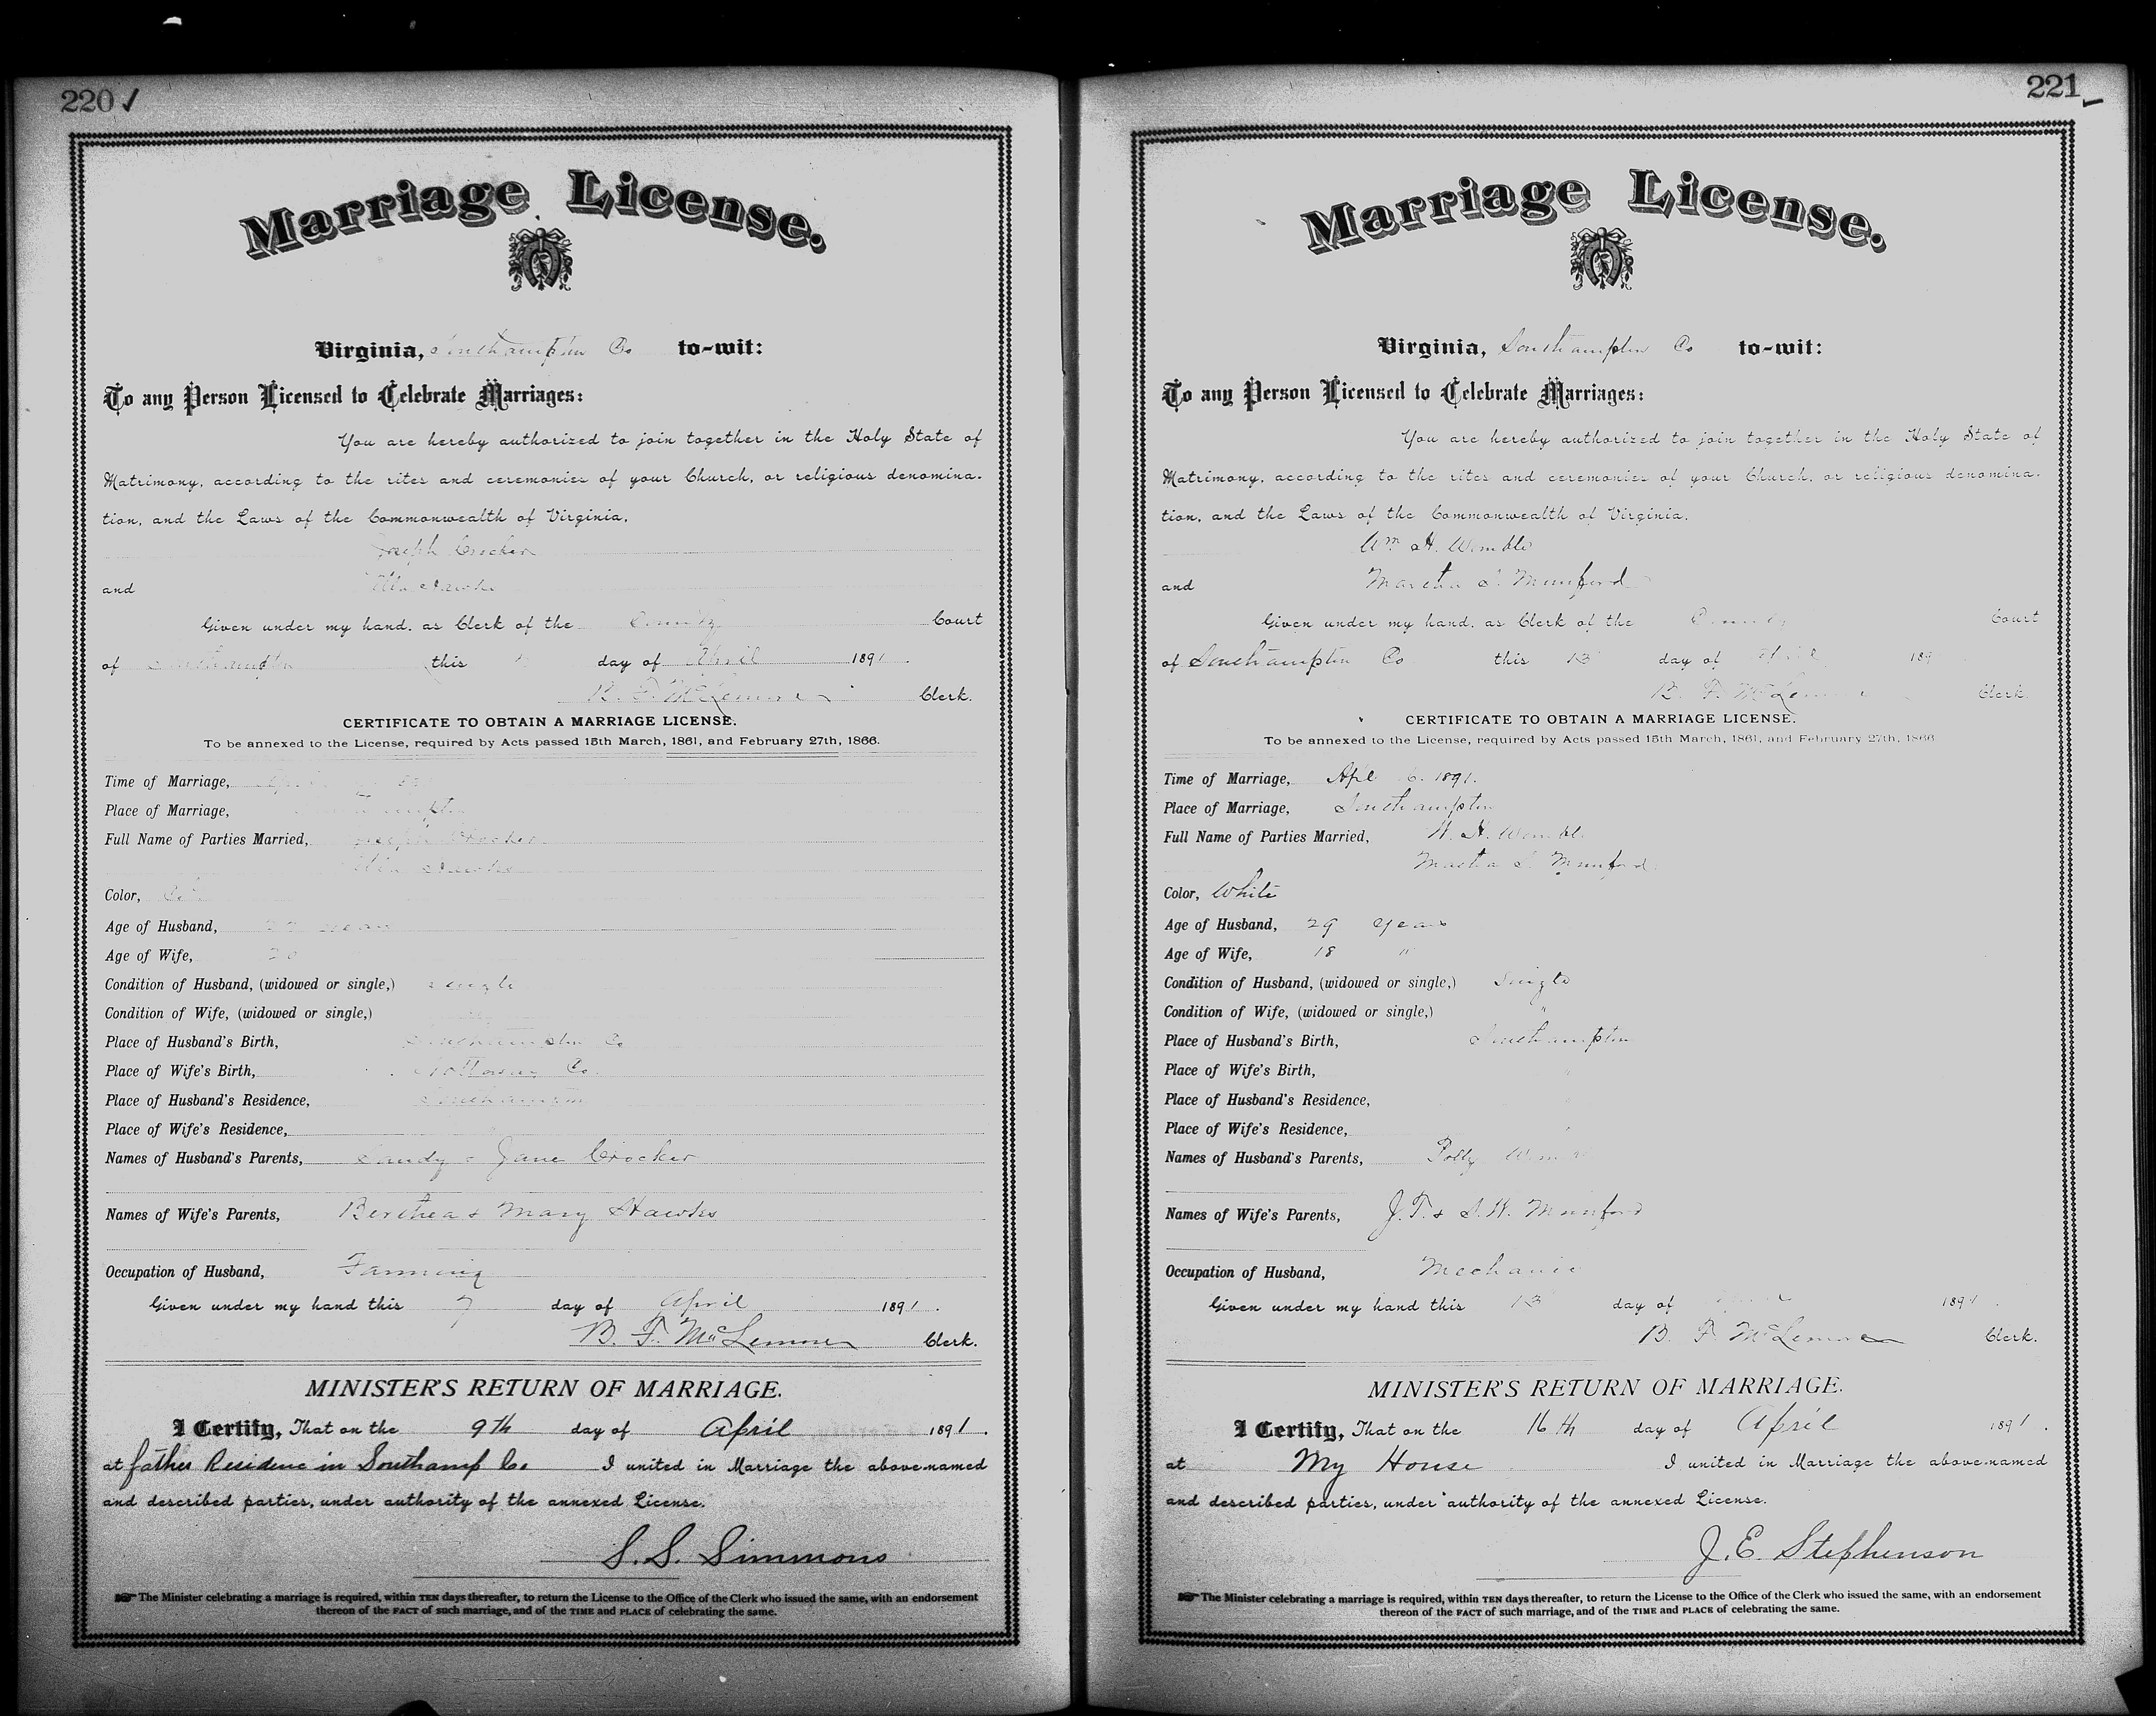 220
Marriage License.
Virginia, Southampton Co to-wit:
To any Person Licensed to Celebrate Marriages:
You are hereby authorized to join together in the Holy State of
Matrimony, according to the rites and ceremonies of your Church, or religious denomina-
tion, and the Laws of the Commonwealth of Virginia,
Joseph Crocker
and
Given under my hand, as Clerk of the County Court
of Southampton this day of April 1891
B. F. McLemore Clerk.
CERTIFICATE TO OBTAIN A MARRIAGE LICENSE.
To be annexed to the License, required by Acts passed 15th March, 1861, and February 27th, 1866.
Time of Marriage,
Place of Marriage, Southampton
Full Name of Parties Married, Joseph Crocker
Color,
Age of Husband, years
Age of Wife, 20
Condition of Husband, (widowed or single,) single
Condition of Wife, (widowed or single,)
Place of Husband's Birth, Southampton Co
Place of Wife's Birth, Nottoway Co.
Place of Husband's Residence, Southampton
Place of Wife's Residence,
Names of Husband's Parents, Sandy & Jane Crocker
Names of Wife's Parents, Berthea & Mary Hawks
Occupation of Husband, Farming
Given under my hand this 7 day of April 1891.
B. F. McLemore Clerk.
MINISTER'S RETURN OF MARRIAGE.
I Certify, That on the 9th day of April 1891.
at father Residenc in Southamp Co. I united in Marriage the above-named
and described parties, under authority of the annexed License.
S. S. Simmons
The Minister celebrating a marriage is required, within TEN days thereafter, to return the License to the Office of the Clerk who issued the same, with an endorsement
thereon of the FACT of such marriage, and of the TIME and PLACE of celebrating the same.
221
Marriage License.
Virginia, Southampton Co to-wit:
To any Person Licensed to Celebrate Marriages:
You are hereby authorized to join together in the Holy State of
Matrimony, according to the rites and ceremonies of your Church, or religious denomina-
tion, and the Laws of the Commonwealth of Virginia,
Wm H. Womble
and Martha S. Munford
Given under my hand, as Clerk of the County Court
of Southampton Co this 13 day of April 189
B. F. McLemore Clerk.
CERTIFICATE TO OBTAIN A MARRIAGE LICENSE.
To be annexed to the License, required by Acts passed 15th March, 1861, and February 27th, 1866
Time of Marriage, Apl 16. 1891.
Place of Marriage, Southampton
Full Name of Parties Married, W. H. Womble
Martha S. Munford
Color, White
Age of Husband, 29 years
Age of Wife, 18 "
Condition of Husband, (widowed or single,) Single
Condition of Wife, (widowed or single,) "
Place of Husband's Birth, Southampton
Place of Wife's Birth,
Place of Husband's Residence,
Place of Wife's Residence,
Names of Husband's Parents, Polly Womble
Names of Wife's Parents, J. T. & S. W. Munford
Occupation of Husband, Mechanic
Given under my hand this 13 day of April 1891.
B. F. McLemore Clerk.
MINISTER'S RETURN OF MARRIAGE.
I Certify, That on the 16th day of April 1891.
at My House I united in Marriage the above-named
and described parties, under authority of the annexed License.
J. E. Stephenson
The Minister celebrating a marriage is required, within TEN days thereafter, to return the License to the Office of the Clerk who issued the same, with an endorsement
thereon of the FACT of such marriage, and of the TIME and PLACE of celebrating the same.